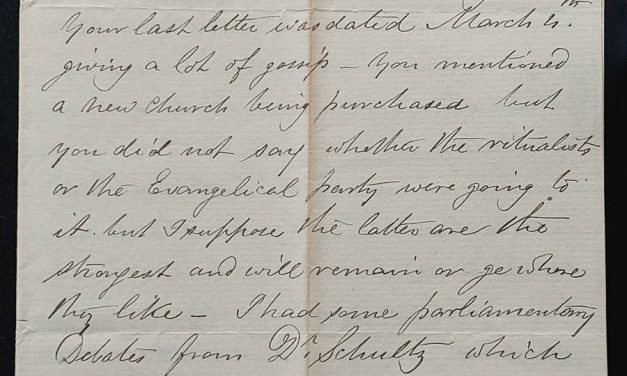 Your last letter was dated March 4th.
giving a lot of gossip – You mentioned
a new church being purchased but
you did not say whether the ritualists
or the Evangelical party were going to
it. but I suppose the latter are the
strongest and will remain or go where
they like – I had some parliamentary
Debates from Dr. Schultz which